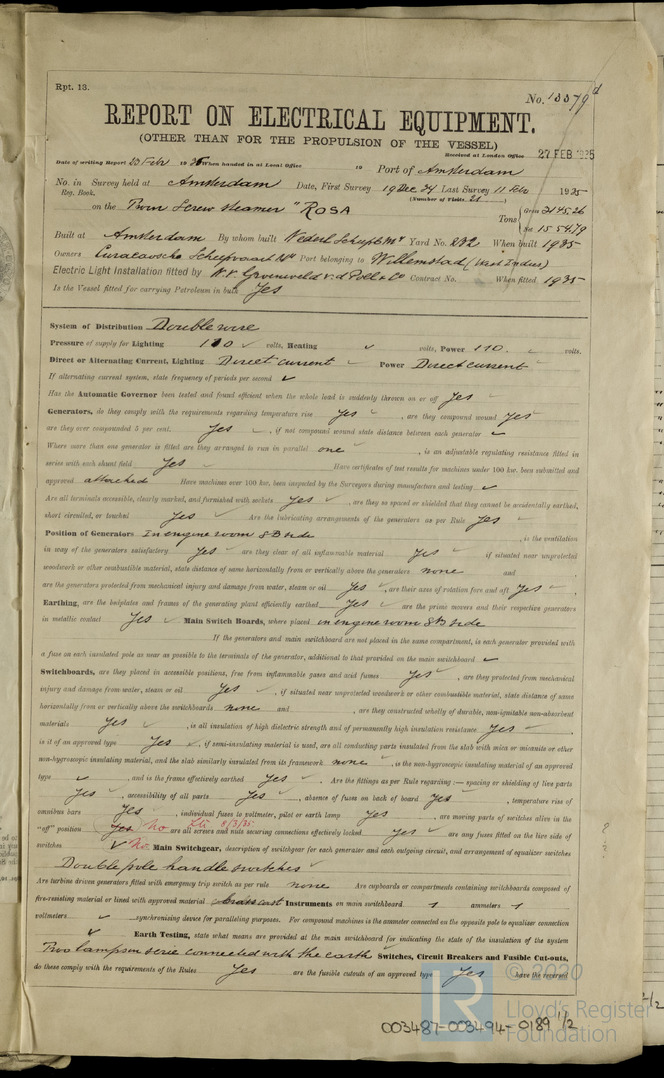 Rpt. 13.
No. 13379d
REPORT ON ELECTRICAL EQUIPMENT.
(OTHER THAN FOR THE PROPULSION OF THE VESSEL)
Received at London Office 27 FEB 1935
Date of writing Report 23 Feb 1935 When handed in at Local Office 19 Port of Amsterdam
No. in Survey held at Amsterdam Date, First Survey 19 Dec 34 Last Survey 11 Feb 1935
Reg. Book. (Number of Visits 21)
on the Twin Screw steamer "ROSA Tons Gross 2145.26
Net 1554.79
Built at Amsterdam By whom built Nederl Scheepb My Yard No. 232 When built 1935
Owners Curacaosche Scheepvaart My Port belonging to Willemstad (West Indies)
Electric Light Installation fitted by N.V. Groeneveld v.d. Poll & Co Contract No. When fitted 1935
Is the Vessel fitted for carrying Petroleum in bulk Yes
System of Distribution Double wire
Pressure of supply for Lighting 110 volts, Heating volts, Power 110. volts.
Direct or Alternating Current, Lighting Direct current Power Direct current
If alternating current system, state frequency of periods per second
Has the Automatic Governor been tested and found efficient when the whole load is suddenly thrown on or off Yes
Generators, do they comply with the requirements regarding temperature rise Yes, are they compound wound Yes
are they over compounded 5 per cent. Yes, if not compound wound state distance between each generator
Where more than one generator is fitted are they arranged to run in parallel one, is an adjustable regulating resistance fitted in
series with each shunt field Yes Have certificates of test results for machines under 100 kw. been submitted and
approved attached Have machines over 100 kw. been inspected by the Surveyors during manufacture and testing
Are all terminals accessible, clearly marked, and furnished with sockets Yes, are they so spaced or shielded that they cannot be accidentally earthed,
short circuited, or touched Yes Are the lubricating arrangements of the generators as per Rule Yes
Position of Generators In engine room SB side, is the ventilation
in way of the generators satisfactory Yes are they clear of all inflammable material Yes if situated near unprotected
woodwork or other combustible material, state distance of same horizontally from or vertically above the generators none and,
are the generators protected from mechanical injury and damage from water, steam or oil Yes, are their axes of rotation fore and aft Yes.
Earthing, are the bedplates and frames of the generating plant efficiently earthed Yes are the prime movers and their respective generators
in metallic contact Yes Main Switch Boards, where placed in engine room SB side
If the generators and main switchboard are not placed in the same compartment, is each generator provided with
a fuse on each insulated pole as near as possible to the terminals of the generator, additional to that provided on the main switchboard
Switchboards, are they placed in accessible positions, free from inflammable gases and acid fumes Yes, are they protected from mechanical
injury and damage from water, steam or oil Yes, if situated near unprotected woodwork or other combustible material, state distance of same
horizontally from or vertically above the switchboards none and, are they constructed wholly of durable, non-ignitable non-absorbent
materials Yes, is all insulation of high dielectric strength and of permanently high insulation resistance Yes.
is it of an approved type Yes, if semi-insulating material is used, are all conducting parts insulated from the slab with mica or micanite or other
non-hygroscopic insulating material, and the slab similarly insulated from its framework none, is the non-hygroscopic insulating material of an approved
type, and is the frame effectively earthed Yes. Are the fittings as per Rule regarding :— spacing or shielding of live parts
Yes, accessibility of all parts Yes, absence of fuses on back of board Yes, temperature rise of
omnibus bars Yes, individual fuses to voltmeter, pilot or earth lamp Yes, are moving parts of switches alive in the
"off" position Yes No 8/3/35 are all screws and nuts securing connections effectively locked Yes are any fuses fitted on the live side of
switches No Main Switchgear, description of switchgear for each generator and each outgoing circuit, and arrangement of equalizer switches
Double pole handle switches
Are turbine driven generators fitted with emergency trip switch as per rule none Are cupboards or compartments containing switchboards composed of
fire-resisting material or lined with approved material Instruments on main switchboard 1 ammeters 1
voltmeters synchronizing device for paralleling purposes. For compound machines is the ammeter connected on the opposite pole to equalizer connection
Earth Testing, state what means are provided at the main switchboard for indicating the state of the insulation of the system
Two lamps in serie connected with the earth Switches, Circuit Breakers and Fusible Cut-outs,
do these comply with the requirements of the Rules Yes are the fusible cutouts of an approved type Yes have the reversed
© 2020
LR Lloyd's Register
Foundation
003487-003494-0189 1/2